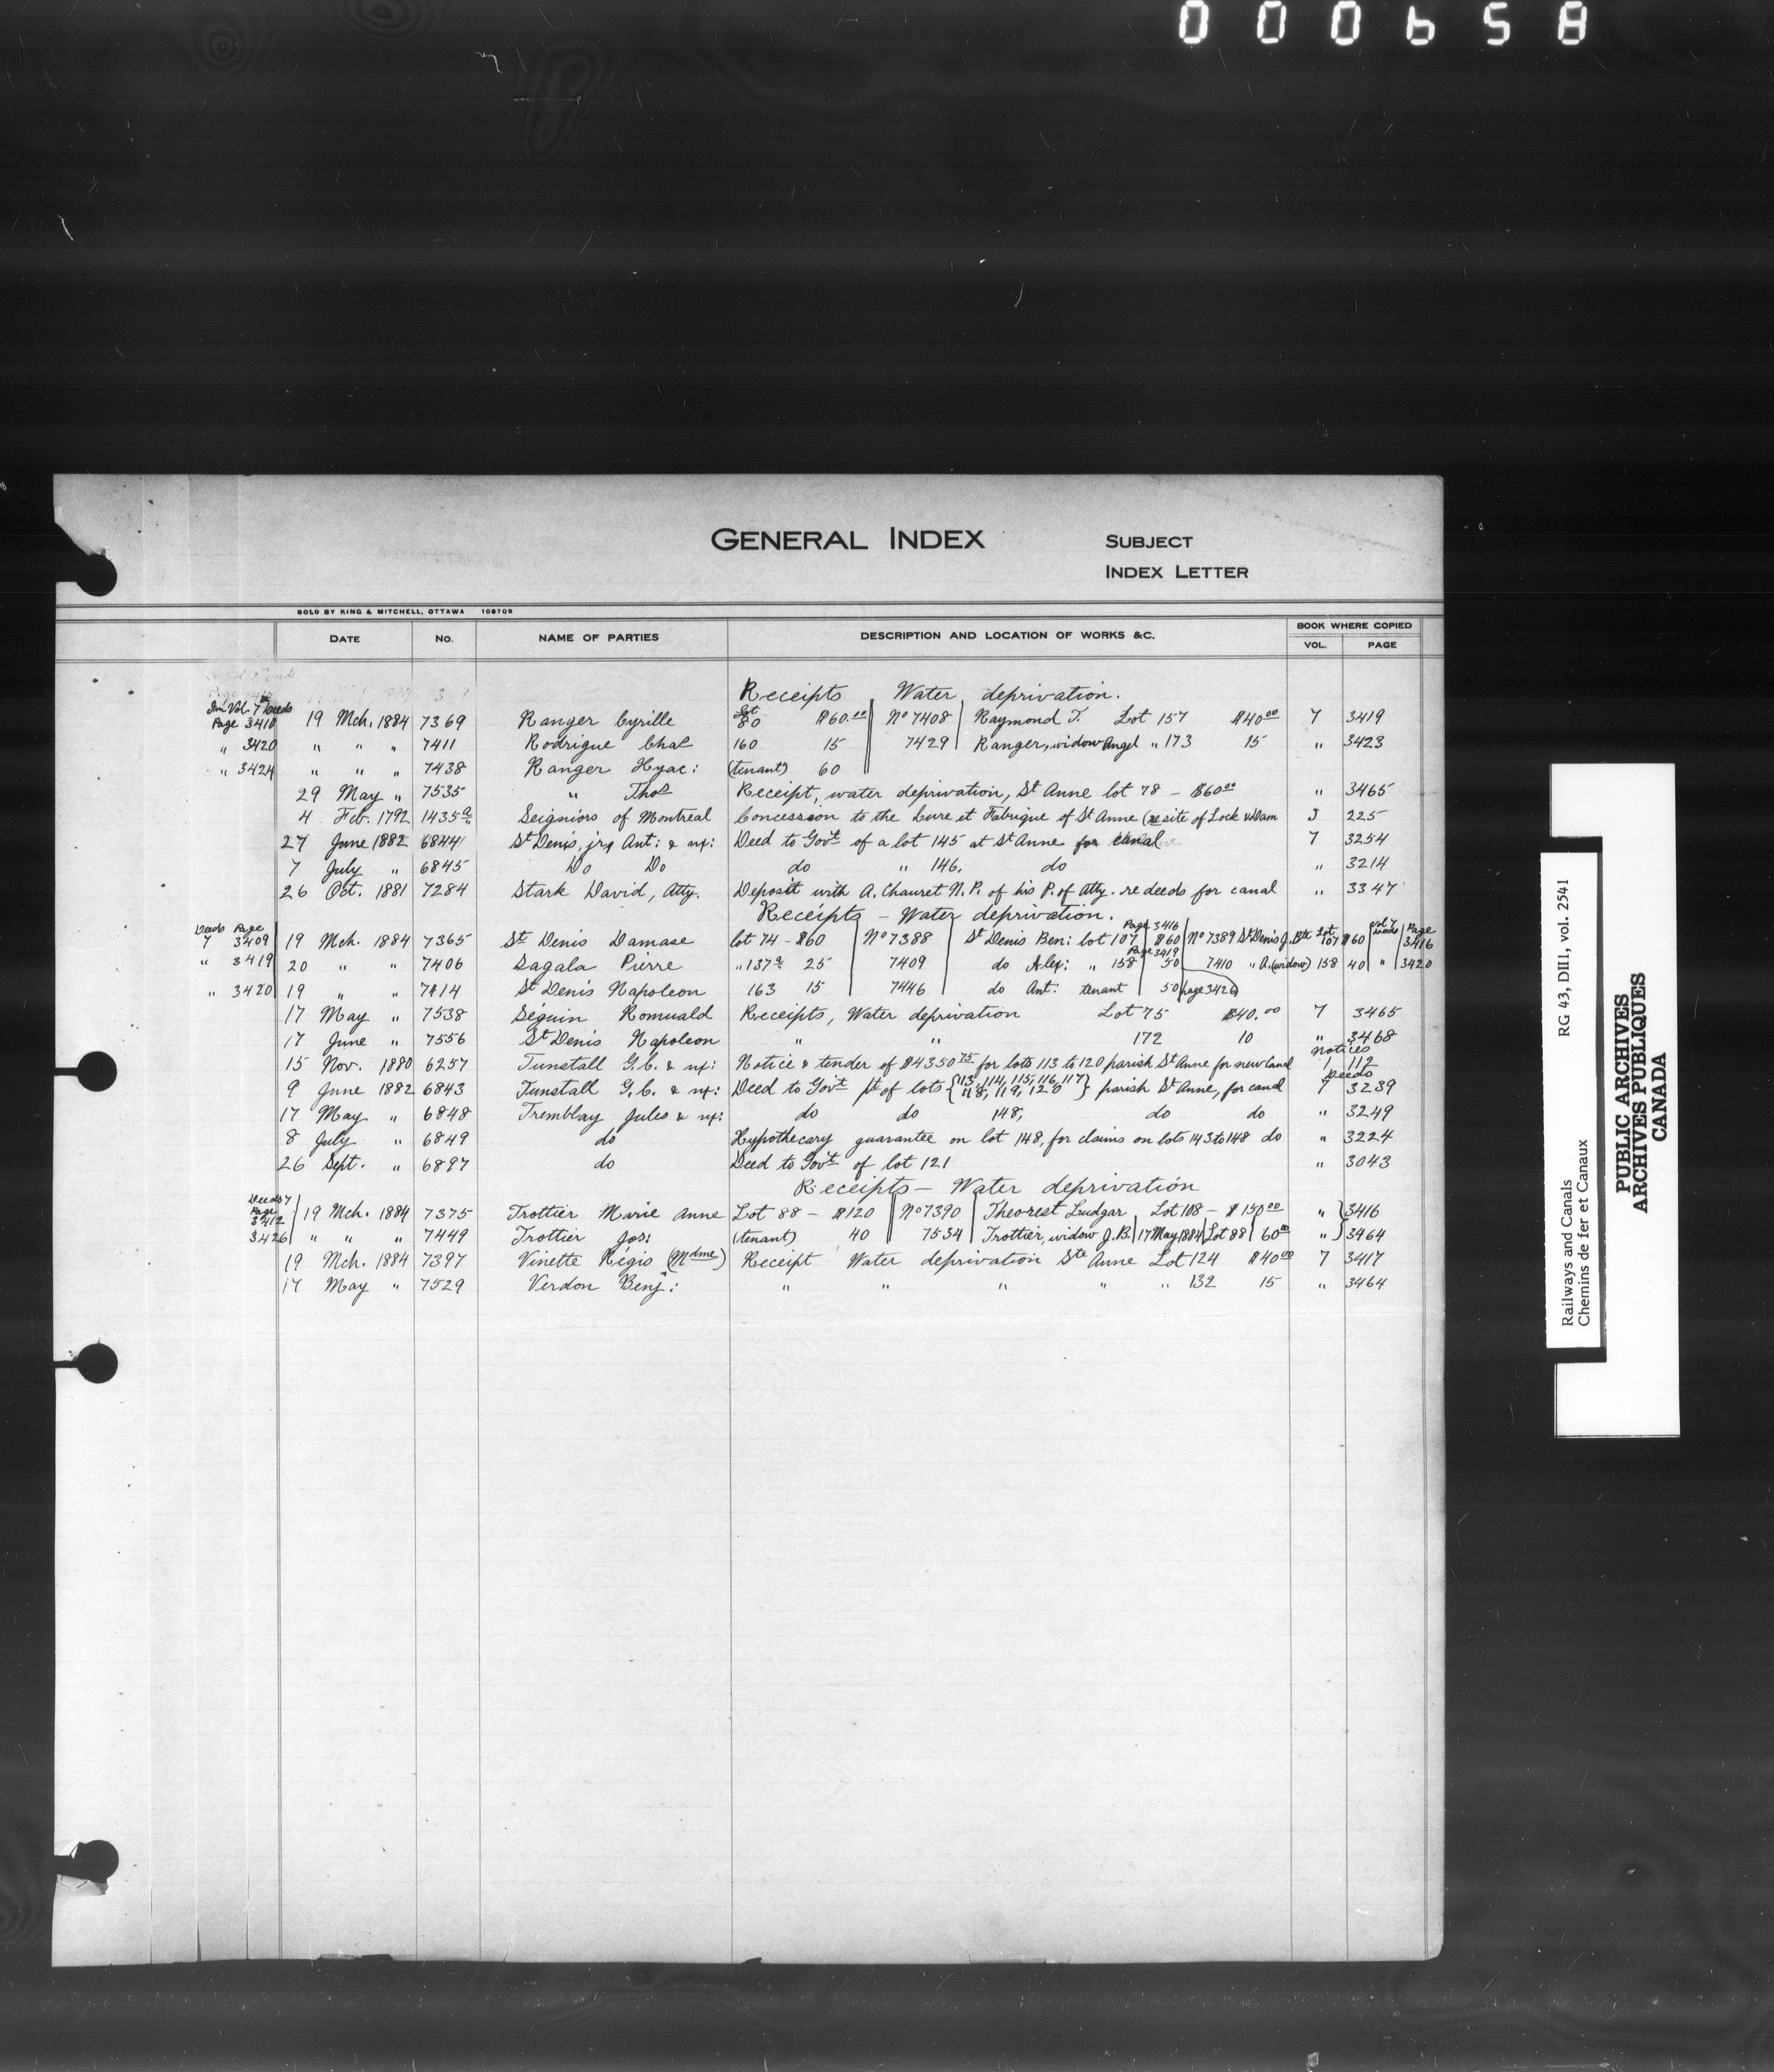 000658
GENERAL INDEX
SUBJECT
INDEX LETTER
SOLD BY KING & MITCHELL, OTTAWA 108709
DATE No. NAME OF PARTIES DESCRIPTION AND LOCATION OF WORKS &C. BOOK WHERE COPIED
VOL. PAGE
Receipts Water deprivation.
In Vol. 7 Deeds
Page 3410 19 Mch. 1884 7369 Ranger Cyrille Lot 80 $60.00 No 7408 Raymond T. Lot 157 $40 00 7 3419
" 3420 " " " 7411 Rodrigue Chas 160 15 7429 Ranger, widow Angel " 173 15 " 3423
" 3424 " " " 7438 Ranger Hyac: (tenant) 60
29 May " 7535 " Thos Receipt, water deprivation, St Anne lot 78 - $60 00 " 3465
4 Feb. 1792 1435 a Seigniors of Montreal Concession to the Cure et Fabrique of St Anne (re site of Lock & Dam J 225
27 June 1882 6844 St Denis, jr, Ant: & ux: Deed to Gov't of a lot 145 at St Anne for canal 7 3254
7 July " 6845 Do Do do " 146, do " 3214
26 Oct. 1881 7284 Stark David, Atty. Deposit with A. Chauret N.P. of his P. of Atty. re deeds for canal " 3347
Receipts - Water deprivation.
Deeds Page
7 3409 19 Mch. 1884 7365 St Denis Damase lot 74 - $60 No 7388 St Denis Ben: lot 107 Page 3416 $60 No 7389 St Denis J. Bte Lot 107 $60 Vol 7 Deeds Page 3416
" 3419 20 " " 7406 Sagala Pierre " 137 a 25 7409 do Alex: " 158 Page 3419 50 7410 " A. (widow) 158 40 " 3420
" 3420 19 " " 7414 St Denis Napoleon 163 15 7446 do Ant: tenant 50 page 3426
17 May " 7538 Séguin Romuald Receipts, Water deprivation Lot 75 $40.00 7 3465
17 June " 7556 St Denis Napoleon " " 172 10 " 3468
15 Nov. 1880 6257 Tunstall G.C. & ux: Notice & tender of $4350 75 for lots 113 to 120 parish St Anne for new Canal Notices 1 112
9 June 1882 6843 Tunstall G.C. & ux: Deed to Gov't pt of lots {113, 114, 115, 116, 117 118, 119, 120} parish St Anne, for canal Deeds 7 3239
17 May " 6848 Tremblay Jules & ux: do do 148, do do " 3249
8 July " 6849 do Hypothecary guarantee on lot 148, for claims on lots 143 to 148 do " 3224
26 Sept. " 6897 do Deed to Gov't of lot 121 " 3043
Receipts - Water deprivation
Deeds 7
Page
3412 19 Mch. 1884 7375 Trottier Marie Anne Lot 88 - $120 No 7390 Theorest Ludgar Lot 108 - $150.00 " 3416
3426 " " " 7449 Trottier Jos: (tenant) 40 7534 Trottier, widow J.B. 17 May 1884 Lot 88 60 00 " 3464
19 Mch. 1884 7397 Vinette Régis (Mdme) Receipt Water deprivation Ste Anne Lot 124 $40 00 7 3417
17 May " 7529 Verdon Benj: " " " " " 132 15 " 3464
Railways and Canals RG 43, DII1, vol. 2541
Chemins de fer et Canaux
PUBLIC ARCHIVES
ARCHIVES PUBLIQUES
CANADA